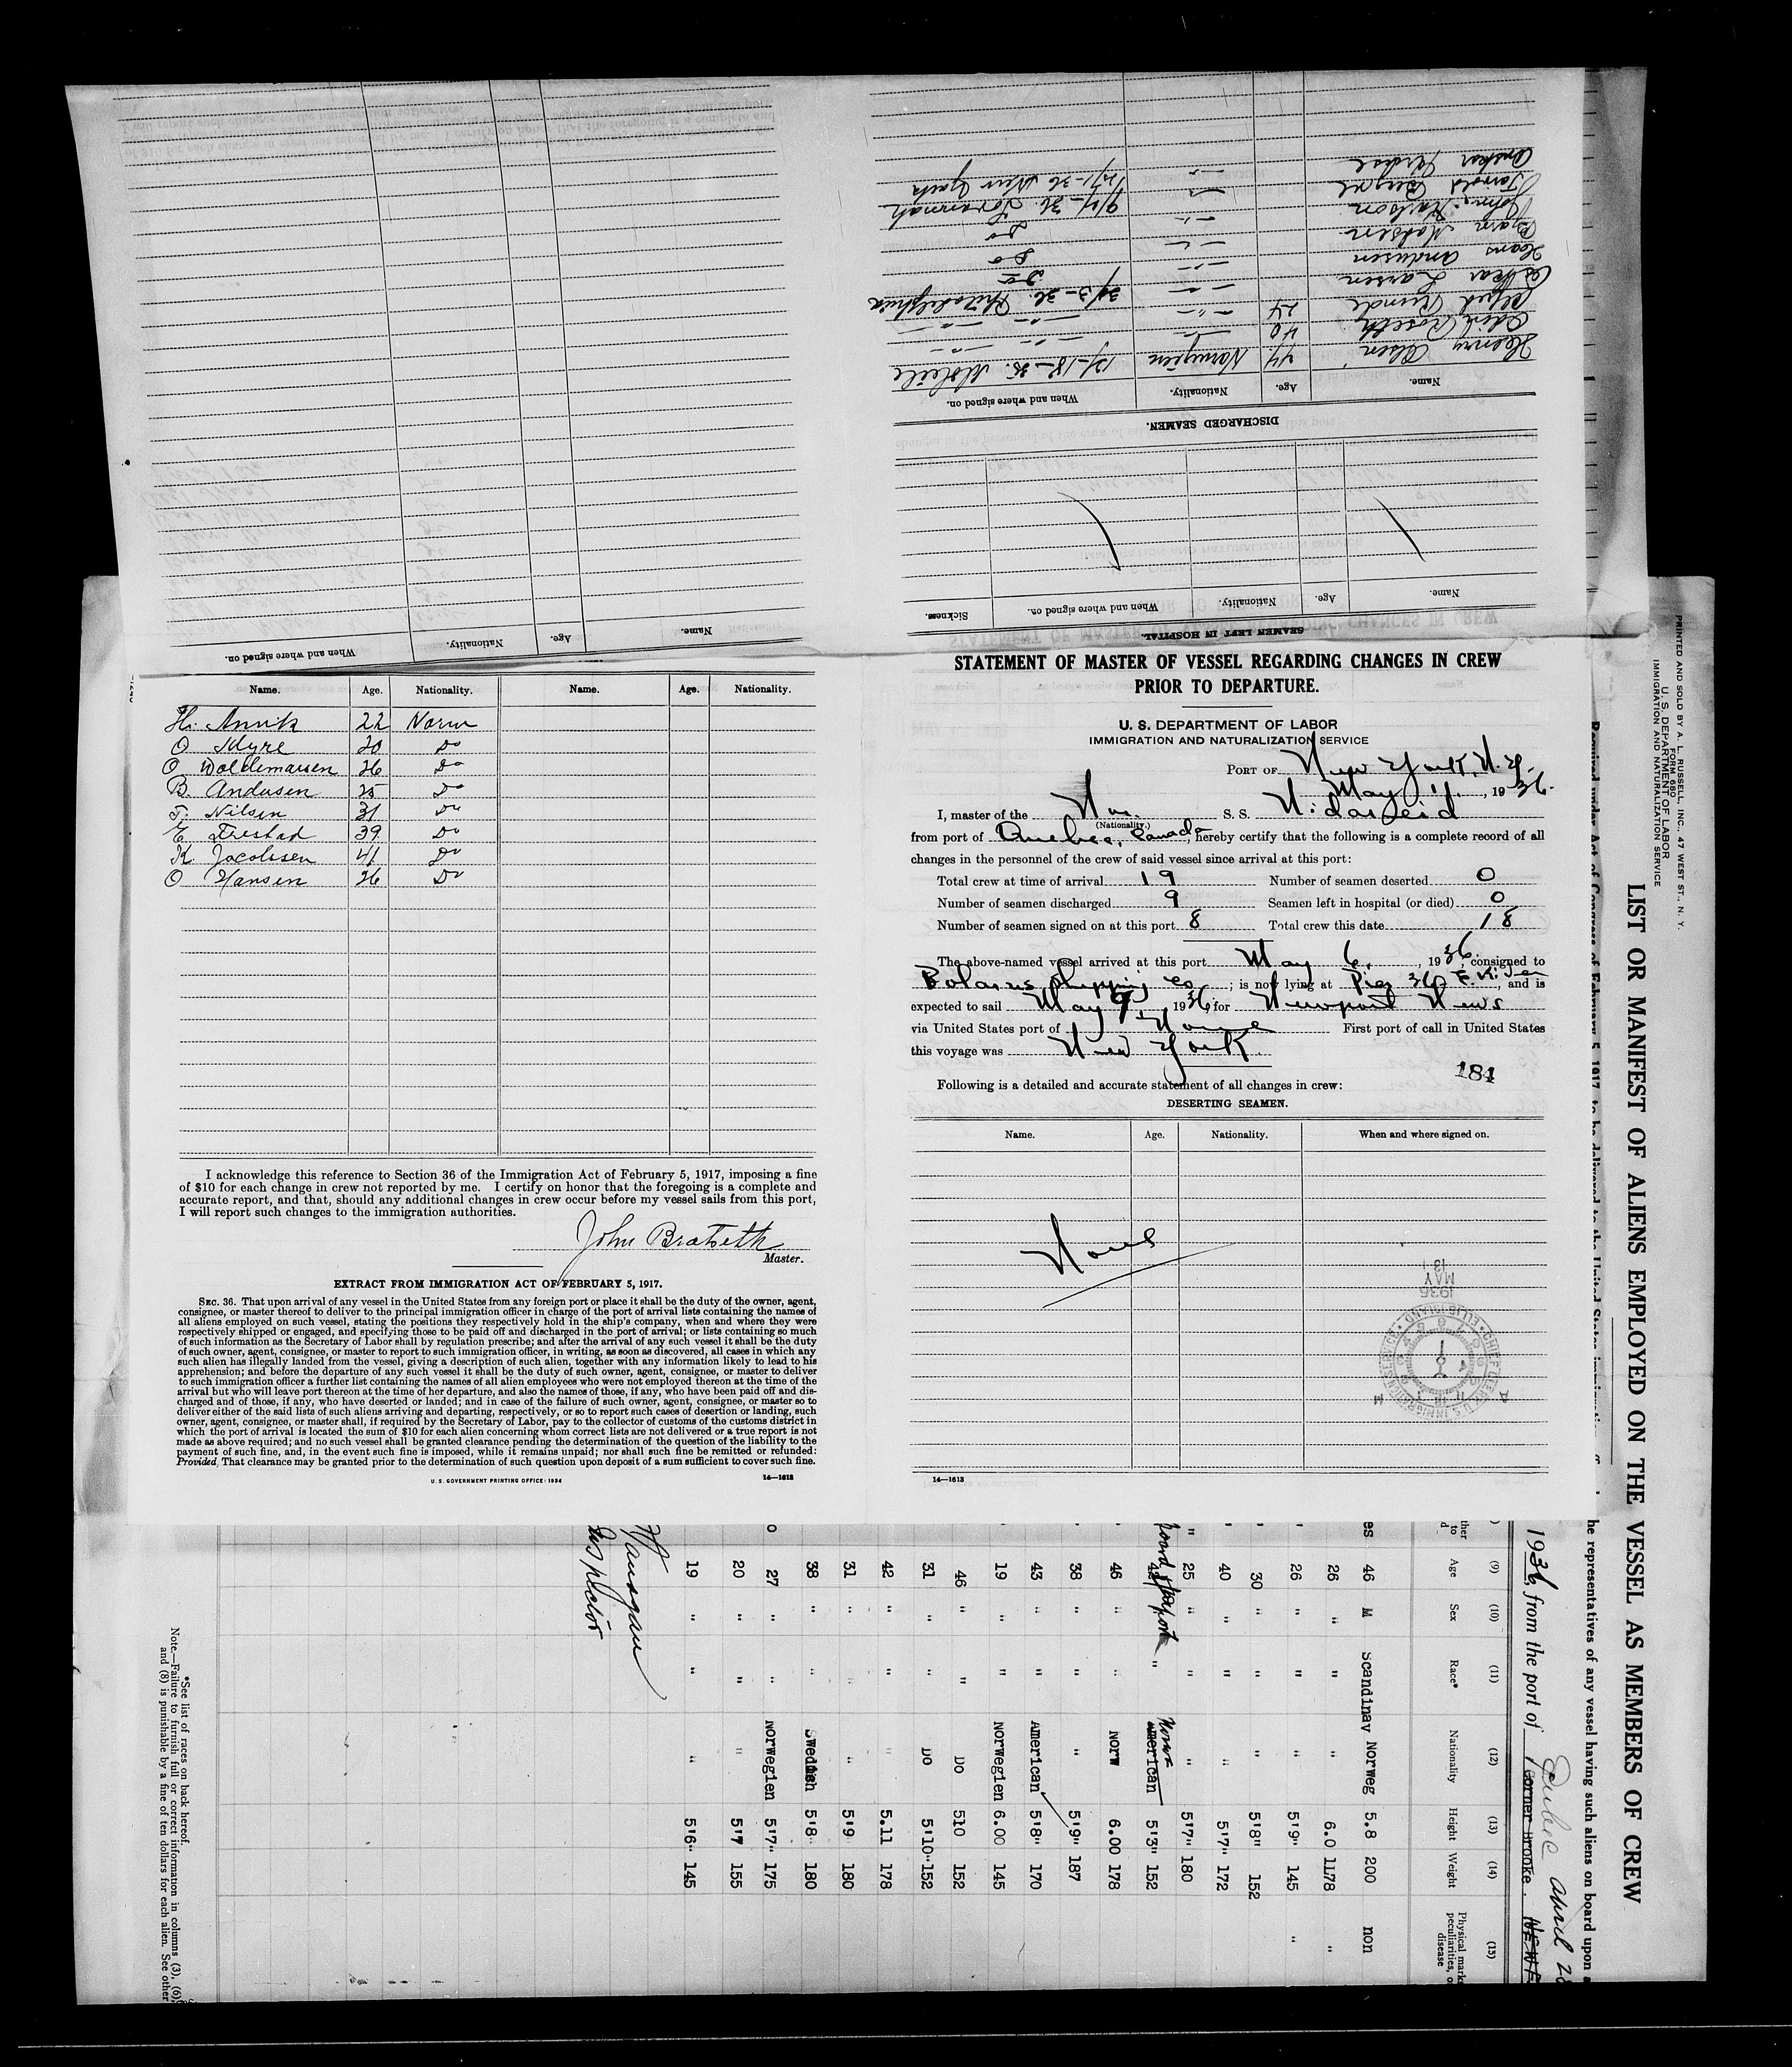 Henry Olsen 44 Norwegian 12/-18-35. Mobile
Odin Roseth 40 -"- -"- -"-
Alfred Runde 24 -"- -"- -"-
Oskar Larsen -"- 30/3-36. Philadelphia
Hans Andersen -"- Do
Bjarn Madsen -"- Do
John Karlson -"- Do
Name. Age. Nationality. When and where signed on.
DISCHARGED SEAMEN.
Sickness. When and where signed on. Nationality. Age. Name.
SEAMEN LEFT IN HOSPITAL.
When and where signed on. Nationality. Age. Name.
Name. Age. Nationality. Name. Age. Nationality.
H. Annik 22 Norw
O Myre 20 Do
O Woldemarsen 26 Do
B. Andersen 25 Do
T. Nilsen 31 Do
E Trestad 39 Do
K Jacobsen 41 Do
O Hansen 26 Do
I acknowledge this reference to Section 36 of the Immigration Act of February 5, 1917, imposing a fine
of $10 for each change in crew not reported by me. I certify on honor that the foregoing is a complete and
accurate report, and that, should any additional changes in crew occur before my vessel sails from this port,
I will report such changes to the immigration authorities.
John Bratseth
Master.
EXTRACT FROM IMMIGRATION ACT OF FEBRUARY 5, 1917.
SEC. 36. That upon arrival of any vessel in the United States from any foreign port or place it shall be the duty of the owner, agent,
consignee, or master thereof to deliver to the principal immigration officer in charge of the port of arrival lists containing the names of
all aliens employed on such vessel, stating the positions they respectively hold in the ship's company, when and where they were
respectively shipped or engaged, and specifying those to be paid off and discharged in the port of arrival; or lists containing so much
of such information as the Secretary of Labor shall by regulation prescribe; and after the arrival of any such vessel it shall be the duty
of such owner, agent, consignee, or master to report to such immigration officer, in writing, as soon as discovered, all cases in which any
such alien has illegally landed from the vessel, giving a description of such alien, together with any information likely to lead to his
apprehension; and before the departure of any such vessel it shall be the duty of such owner, agent, consignee, or master to deliver
to such immigration officer a further list containing the names of all alien employees who were not employed thereon at the time of the
arrival but who will leave port thereon at the time of her departure, and also the names of those, if any, who have been paid off and dis-
charged and of those, if any, who have deserted or landed; and in case of the failure of such owner, agent, consignee, or master so to
deliver either of the said lists of such aliens arriving and departing, respectively, or so to report such cases of desertion or landing, such
owner, agent, consignee, or master shall, if required by the Secretary of Labor, pay to the collector of customs of the customs district in
which the port of arrival is located the sum of $10 for each alien concerning whom correct lists are not delivered or a true report is not
made as above required; and no such vessel shall be granted clearance pending the determination of the question of the liability to the
payment of such fine, and, in the event such fine is imposed, while it remains unpaid; nor shall such fine be remitted or refunded:
Provided, That clearance may be granted prior to the determination of such question upon deposit of a sum sufficient to cover such fine.
U. S. GOVERNMENT PRINTING OFFICE: 1934 14—1613
STATEMENT OF MASTER OF VESSEL REGARDING CHANGES IN CREW
PRIOR TO DEPARTURE.
U. S. DEPARTMENT OF LABOR
IMMIGRATION AND NATURALIZATION SERVICE
PORT OF New York, N.Y.
May 11., 1936.
I, master of the Nor. S. S. Nidareid
(Nationality.)
from port of Quebec, Canada, hereby certify that the following is a complete record of all
changes in the personnel of the crew of said vessel since arrival at this port:
Total crew at time of arrival 19 Number of seamen deserted 0
Number of seamen discharged 9 Seamen left in hospital (or died) 0
Number of seamen signed on at this port 8 Total crew this date 18
The above-named vessel arrived at this port May 6, 1936, consigned to
Shipping Co; is now lying at Pier 36 E. River, and is
expected to sail May 9, 1936, for Newport News
via United States port of None First port of call in United States
this voyage was New York.
184
Following is a detailed and accurate statement of all changes in crew:
DESERTING SEAMEN.
Name. Age. Nationality. When and where signed on.
None
1936
MAY
CHIEF CLERK U.S. IMMIGRATION SERVICE ELLIS ISLAND
14—1613
PRINTED AND SOLD BY A. L. RUSSELL, INC., 47 WEST ST., N. Y.
FORM 680
U. S. DEPARTMENT OF LABOR
IMMIGRATION AND NATURALIZATION SERVICE
LIST OR MANIFEST OF ALIENS EMPLOYED ON THE VESSEL AS MEMBERS OF CREW
he representatives of any vessel having such aliens on board upon a
1936, from the port of Quebec April 28
Corner Brooke.
(9) (10) (11) (12) (13) (14) (15)
Age Sex Race* Nationality Height Weight Physical marks, peculiarities, o disease
es 46 M Scandinav Norweg 5.8 200 non
26 " " " 6.0 1178 "
26 " " " 5'9" 145 "
30 " " 5'8" 152
40 " " " 5'7" 172
" 25 " " " 5'7" 180
42 " Norw American 5'3" 152
46 " " Norw 6.00 178
38 " " " 5'9" 187
43 " " American 5'8" 170
19 " " Norwegien 6.00 145
46 " " DO 510 152
31 " " DO 5'10" 152
42 " " " 5.11 178
31 " " " 5'9 180
38 " " Swedish 5'8 180
27 " " Norwegien 5'7" 175
20 " " " 5'7 155
19 " " " 5'6" 145
Inspector
*See list of races on back hereof.
Note.—Failure to furnish full or correct information in columns (3), (6),
and (8) is punishable by a fine of ten dollars for each alien. See other